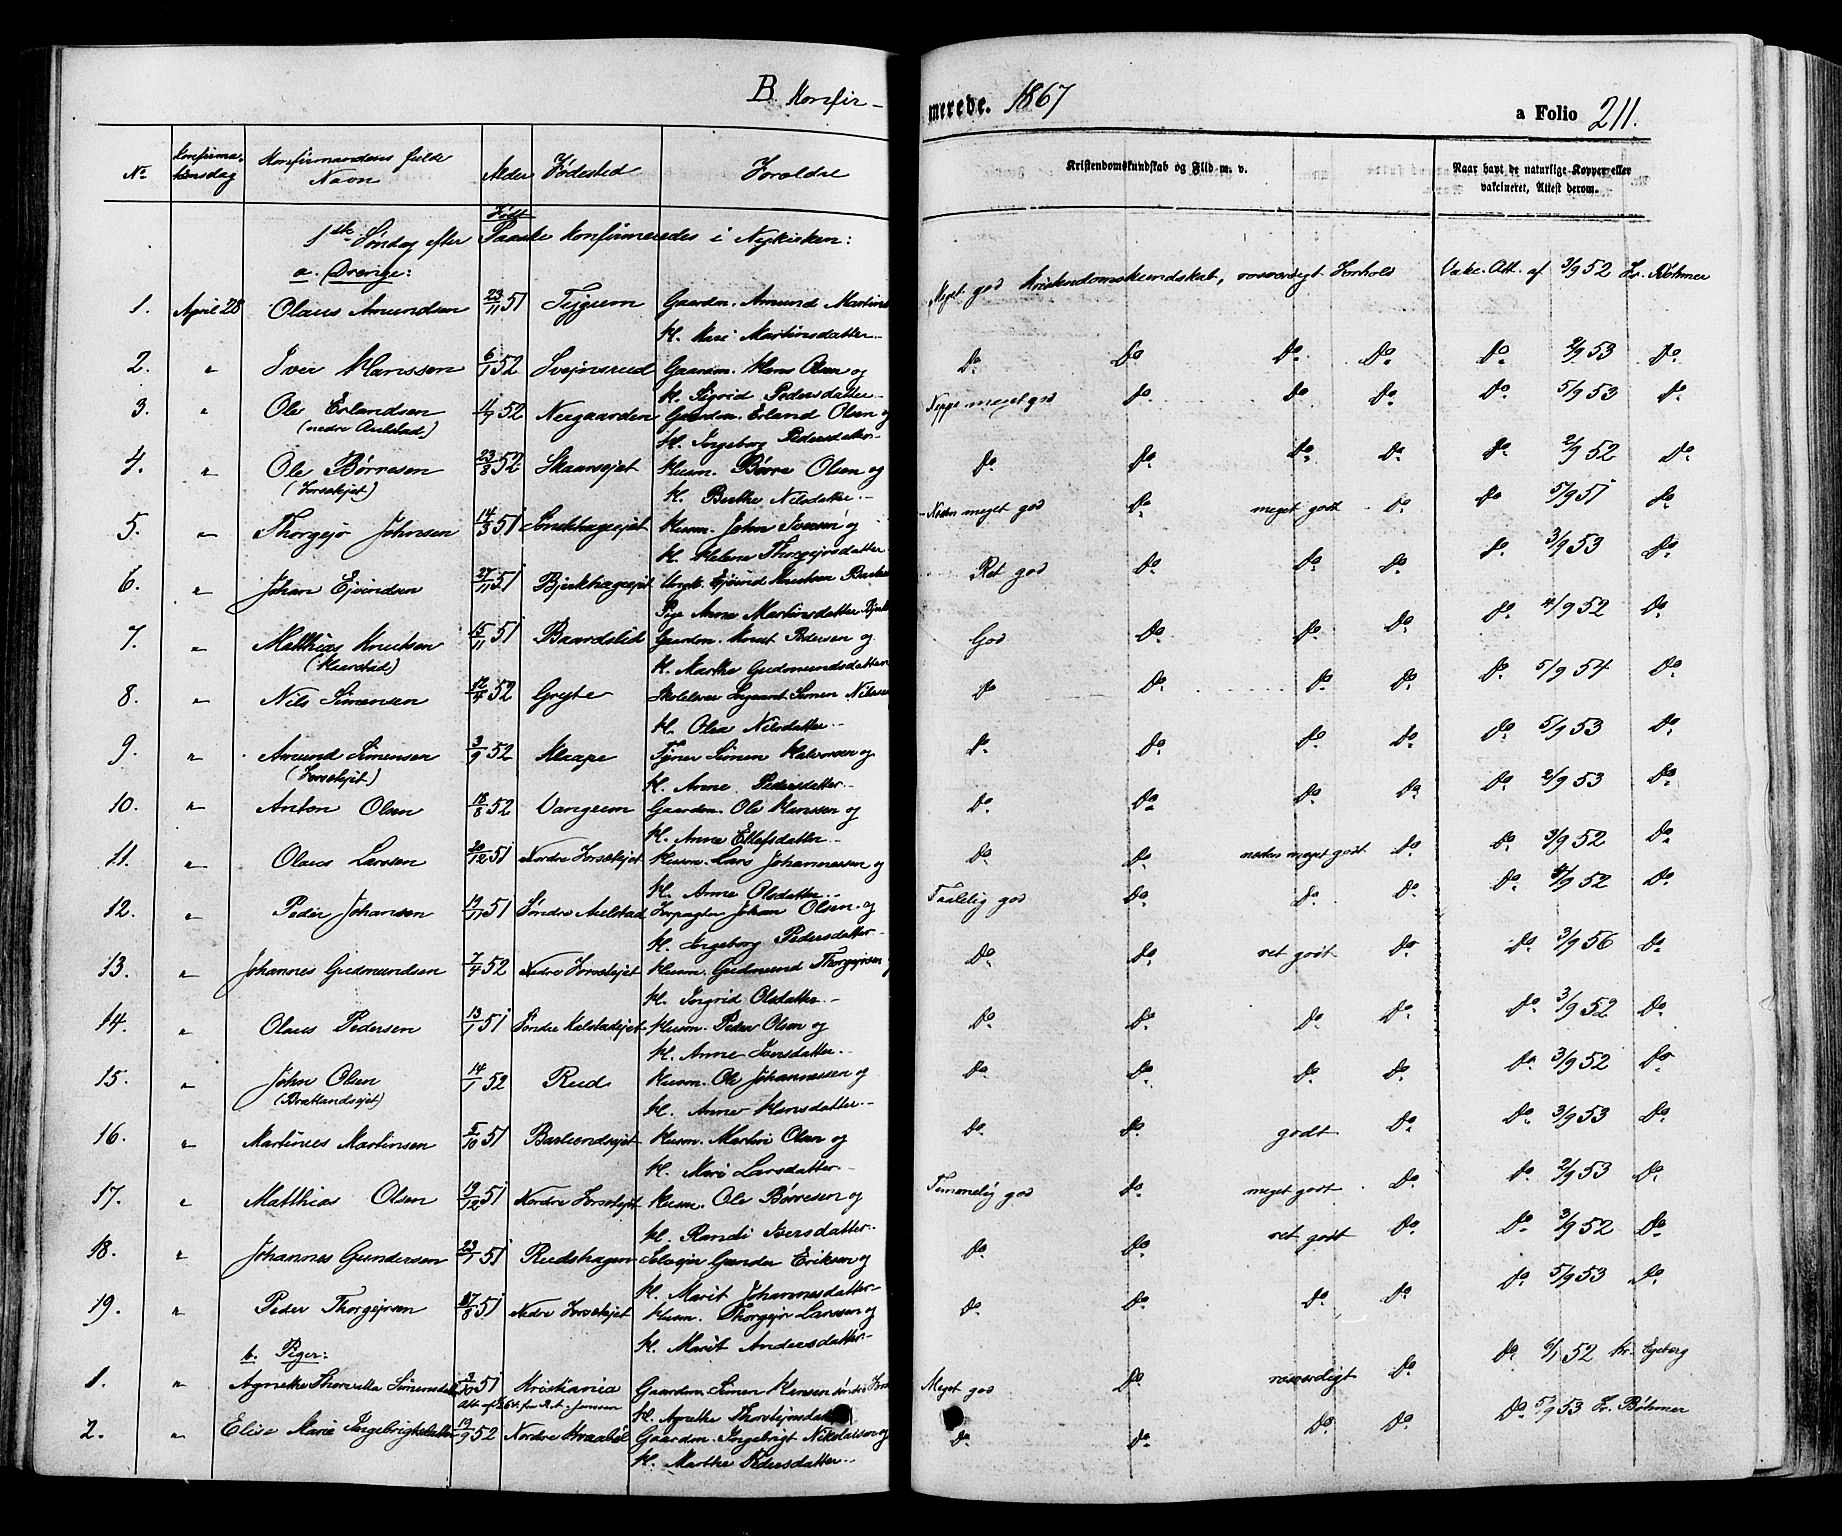 B. Konfir-
merede. 1867
a Folio 211.
No
Konfirma-
tionsdag
Konfirmandens fulde
Navn
Alder
Fødested
Forældre
Kristendomskundskab og Flid m. v.
Naar havt de naturlige Kopper eller
vakcineret, Attest derom.
Født
1ste Søndag efter Paaske konfirmeredes i Nykirken:
a. Drenge:
1. April 28 Olaus Amundsen 23/11 51 Gaardm. Amund
K. Mari Martinsdatter
Meget god Kristendomskundskab, rosværdigt Forhold Vakc. Att. af 3/9 52 Fr. Bøhmer
2. " Iver Hanssen 6/1 52 Svejnsrud Gaardm. Hans Olsen og
K. Sigrid Pedersdatter
Do Do Do Do Do 2/9 53 Do
3. " Ole Erlandsen 52 Nergaarden Gaardm. Erland Olsen og
(nedre Aulstad) K. Ingeborg Pedersdatter
Neppe meget god Do Do Do Do 5/9 53 Do
4. " Ole Børresen 23/8 52 Skaarsejet Husm. Børre Olsen og
K. Berthe Nilsdatter
Do Do Do Do Do 2/9 52 Do
5. " Thorgejr Johnsen 14/3 51 Husm. John Iversen og
K. Helene Thorgejrsdatter
Næsten meget god Do meget godt Do Do 5/9 51 Do
6. " Johan Ejvindsen 27/11 51 Bjerkhageejet Ungk. Ejvind Knutsen
Pige Anne Martinsdatter
Ret god Do Do Do Do 3/9 53 Do
7. " Matthias Knutsen 15/11 51 Baardslid Gaardm. Knut Pedersen og
K. Marthe Gudmundsdatter
God Do Do Do Do 52 Do
8. " Nils Simensen 12/4 52 Gryte Simen Nilssen
K. Olea Nilsdatter
Do Do Do Do Do 5/9 54 Do
9. " Amund Simensen 3/9 52 Klaape Simen og
K. Anne Pedersdatter
Do Do Do Do Do 5/9 53 Do
10. " Anton Olsen 18/8 52 Vangrum Gaardm. Ole Hanssen og
K. Anne Ellefsdatter
Do Do Do Do Do 2/9 53 Do
11. " Olaus Larsen 51 Nordre Husm. Lars Johannessen og
K. Anne Olsdatter
Do Do næsten meget godt Do Do 3/9 52 Do
12. " Peder Johansen 19/11 51 Søndre Aulstad Forpagter Johan Olsen og
K. Ingeborg Pedersdatter
Taalelig god Do Do Do Do 52 Do
13. " Johannes Gudmundsen 7/4 52 Nedre Husm. Gudmund Thorgejrsen og
K. Ingrid Olsdatter
Do Do ret godt Do Do 3/9 56 Do
14. " Olaus Pedersen 13/1 51 Søndre Husm. Peder Olsen og
K. Anne Iversdatter
Do Do Do Do Do 3/9 52 Do
15. " John Olsen 14/1 52 Rud Husm. Ole Johannessen og
(Brætlandsejet) K. Anne Hansdatter
Do Do Do Do Do 3/9 52 Do
16. " Martinus Martinsen 5/10 51 Husm. Martin Olsen og
K. Mari Larsdatter
Do Do godt Do Do 3/9 53 Do
17. " Matthias Olsen 19/12 51 Nordre Husm. Ole Børresen og
K. Randi Iversdatter
Temmelig god Do meget godt Do Do 2/9 53 Do
18. " Johannes Gundersen 23/1 51 Rudshagen Gunder Eriksen og
K. Marit Johannesdatter
Do Do ret godt Do Do 3/9 52 Do
19. " Peder Thorgejrsen 17/8 51 Nedre Husm. Thorgejr Larssen og
K. Marit Andersdatter
Do Do Do Do Do 5/9 53 Do
b. Piger:
1. " Agnethe 51 Kristiania Gaardm. Simen Hansen
K. Agnethe
Meget god Do rosværdigt Do Do 6/1 52 Kr. Egeberg
2. " Elise Marie Ingebrigtsdatter 19/9 52 Nordre Gaardm. Ingebrigt Nikolaisen og
K. Marthe Pedersdatter
Do Do Do Do Do 5/9 53 Fr. Bøhmer